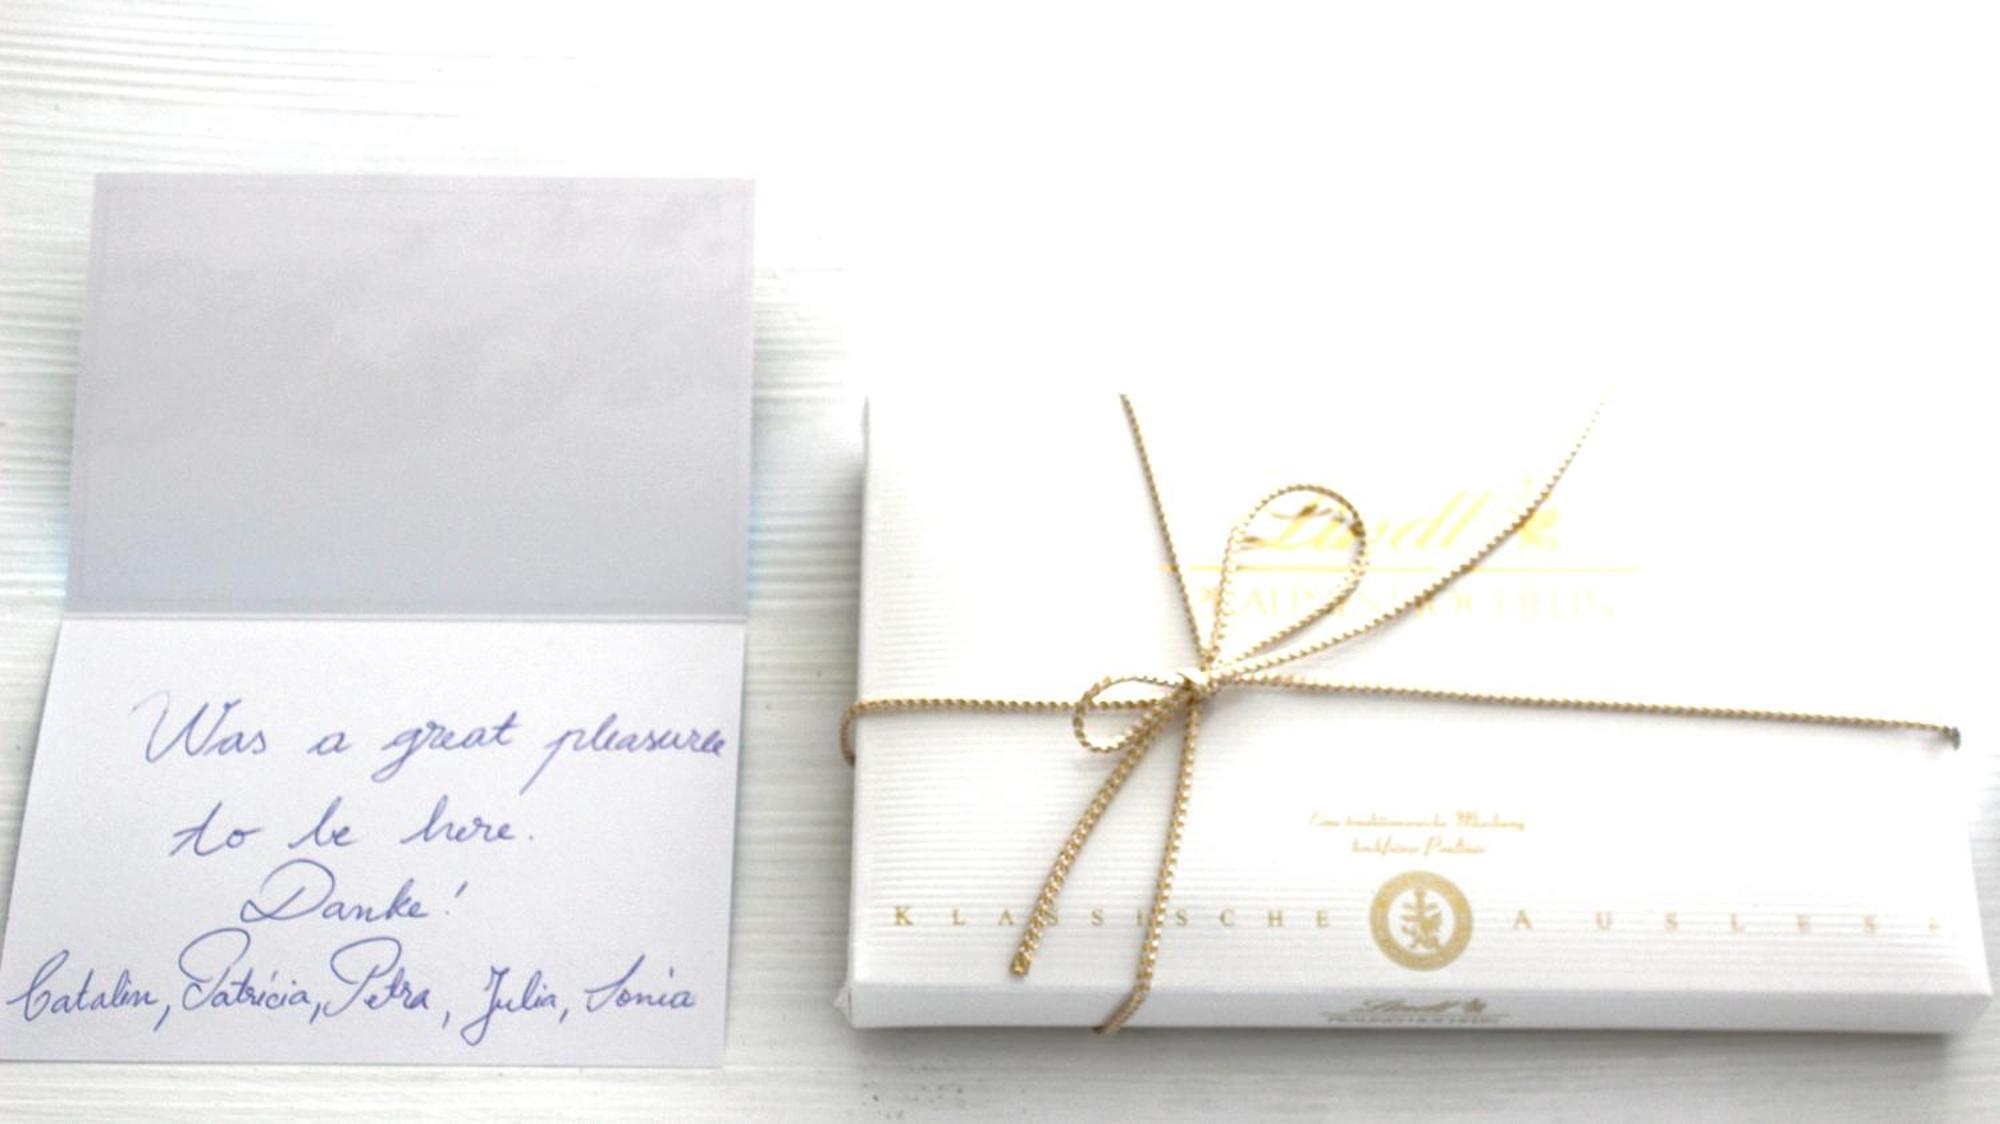 Was a great pleasure
to be here.
Danke!
Catalin, Patrícia, Petra, Julia, Sonia
Lindt
PRALINÉS HOCHFEIN
Eine traditionsreiche Mischung
hochfeiner Pralinés
KLASSISCHE AUSLESE
Lindt
PRALINÉS HOCHFEIN